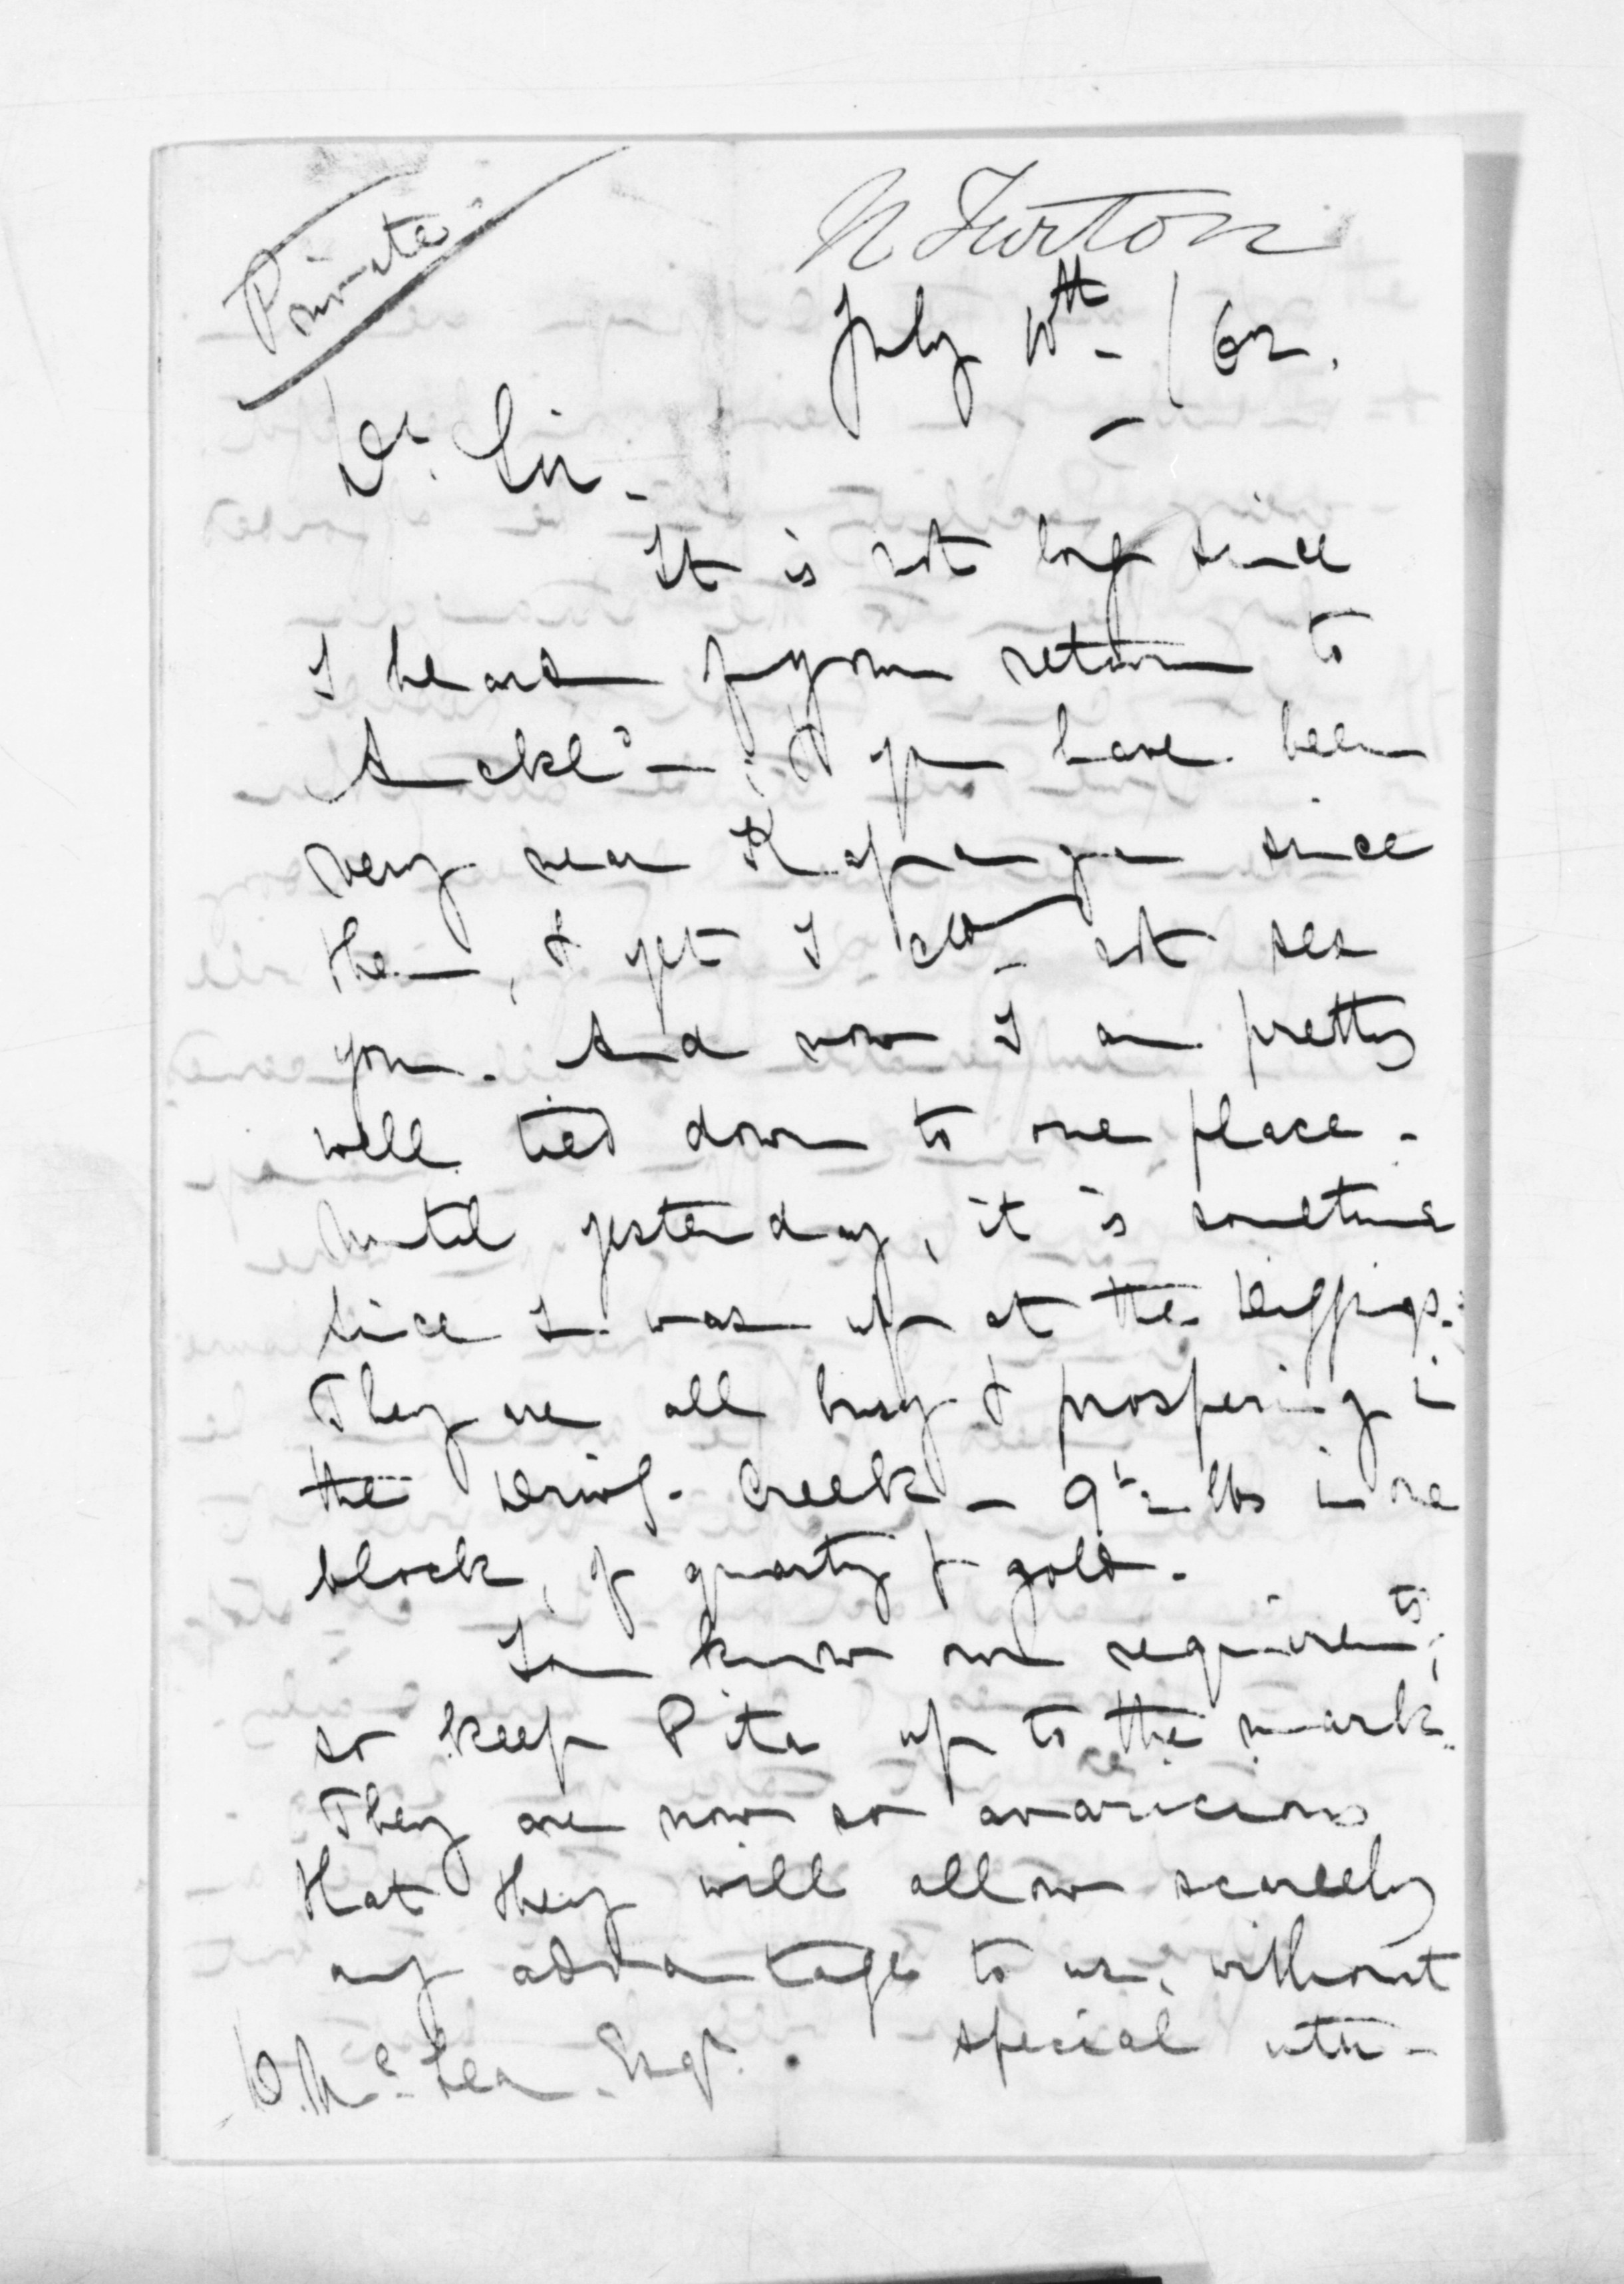 Private
N Turton
July 10th - / 62.
Dr. Sir -
It is not long since
I heard of your return to
Auckld - ; & you have been
very near Kapanga since
then, & yet I cld not see
you. And now I am pretty
well tied down to one place -
Until yesterday, it is sometime
since I was up at the Diggings.
They are all busy & prospering in
the Drivg. Creek - 9 lbs in one
block, of quartz & gold.
You know our requiremts,
so keep Pita up to the mark.
They are now so avaricious
that they will allow scarcely
any advantage to us, without
special
D. McLean Esqr.